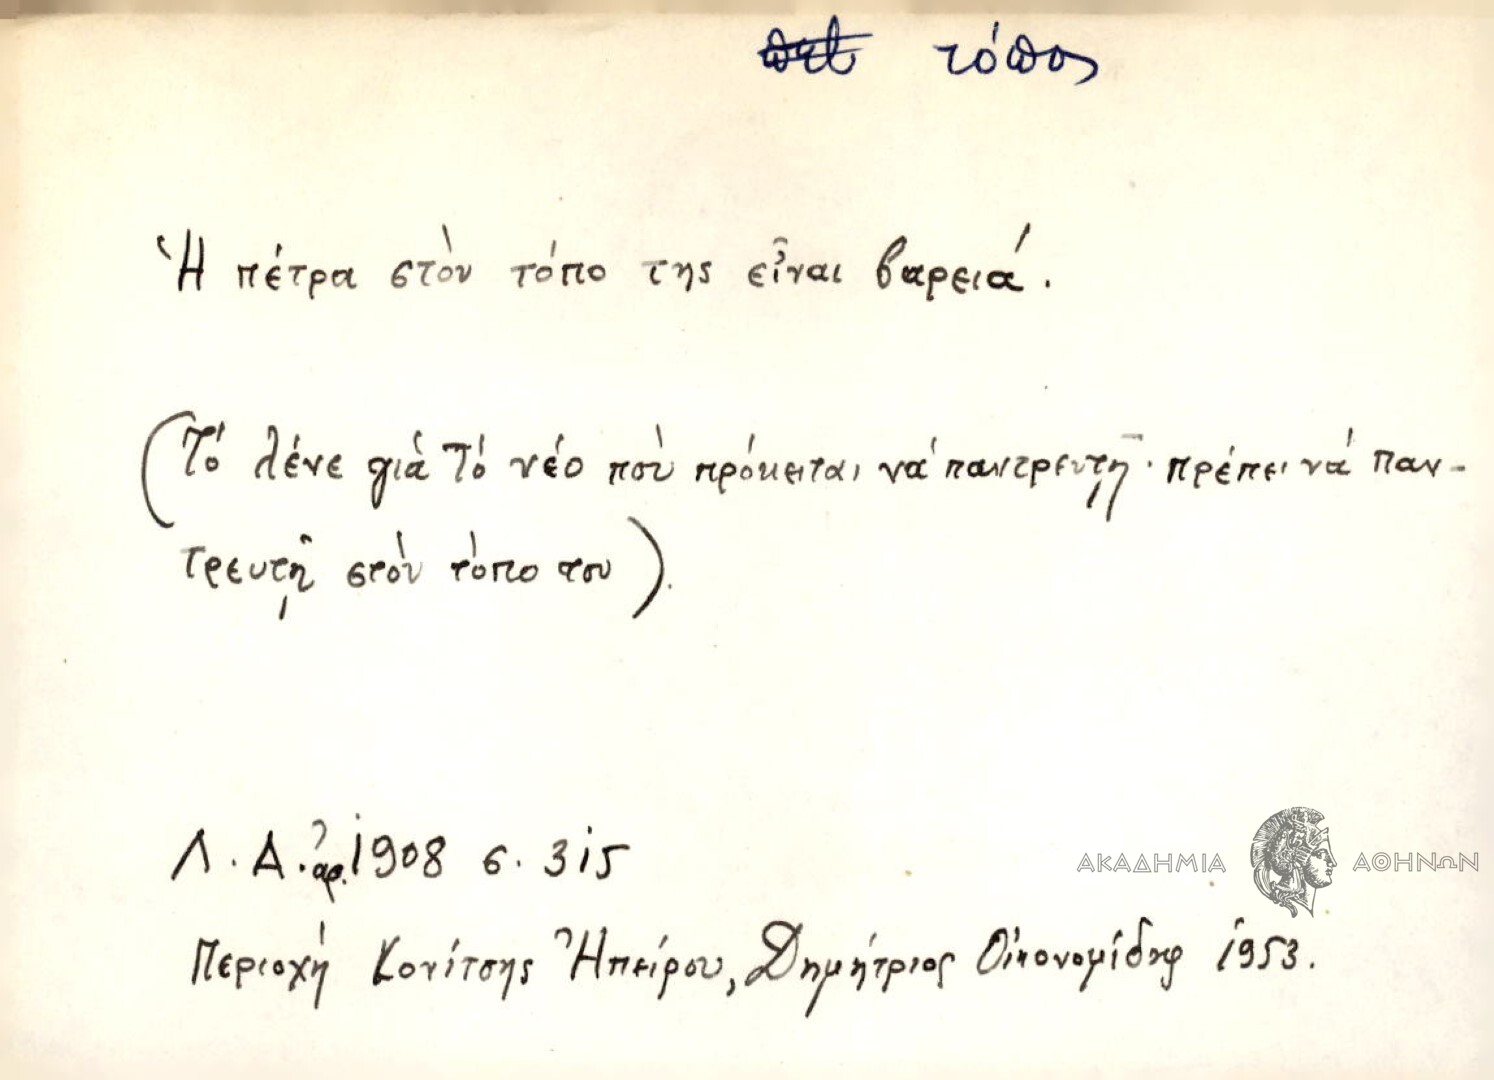 τόπος
Ἡ πέτρα στὸν τόπο της εἶναι βαρειά.
(Τό λένε γιὰ τὸ νέο ποὺ πρόκειται νὰ παντρευτῇ· πρέπει νὰ παν-
τρευτῇ στὸν τόπο του).
Λ. Δ. ἀρ. 1908 σ. 315
ΑΚΑΔΗΜΙΑ ΑΘΗΝΩΝ
Περιοχὴ Κονίτσης Ἠπείρου, Δημήτριος Οἰκονομίδης 1953.